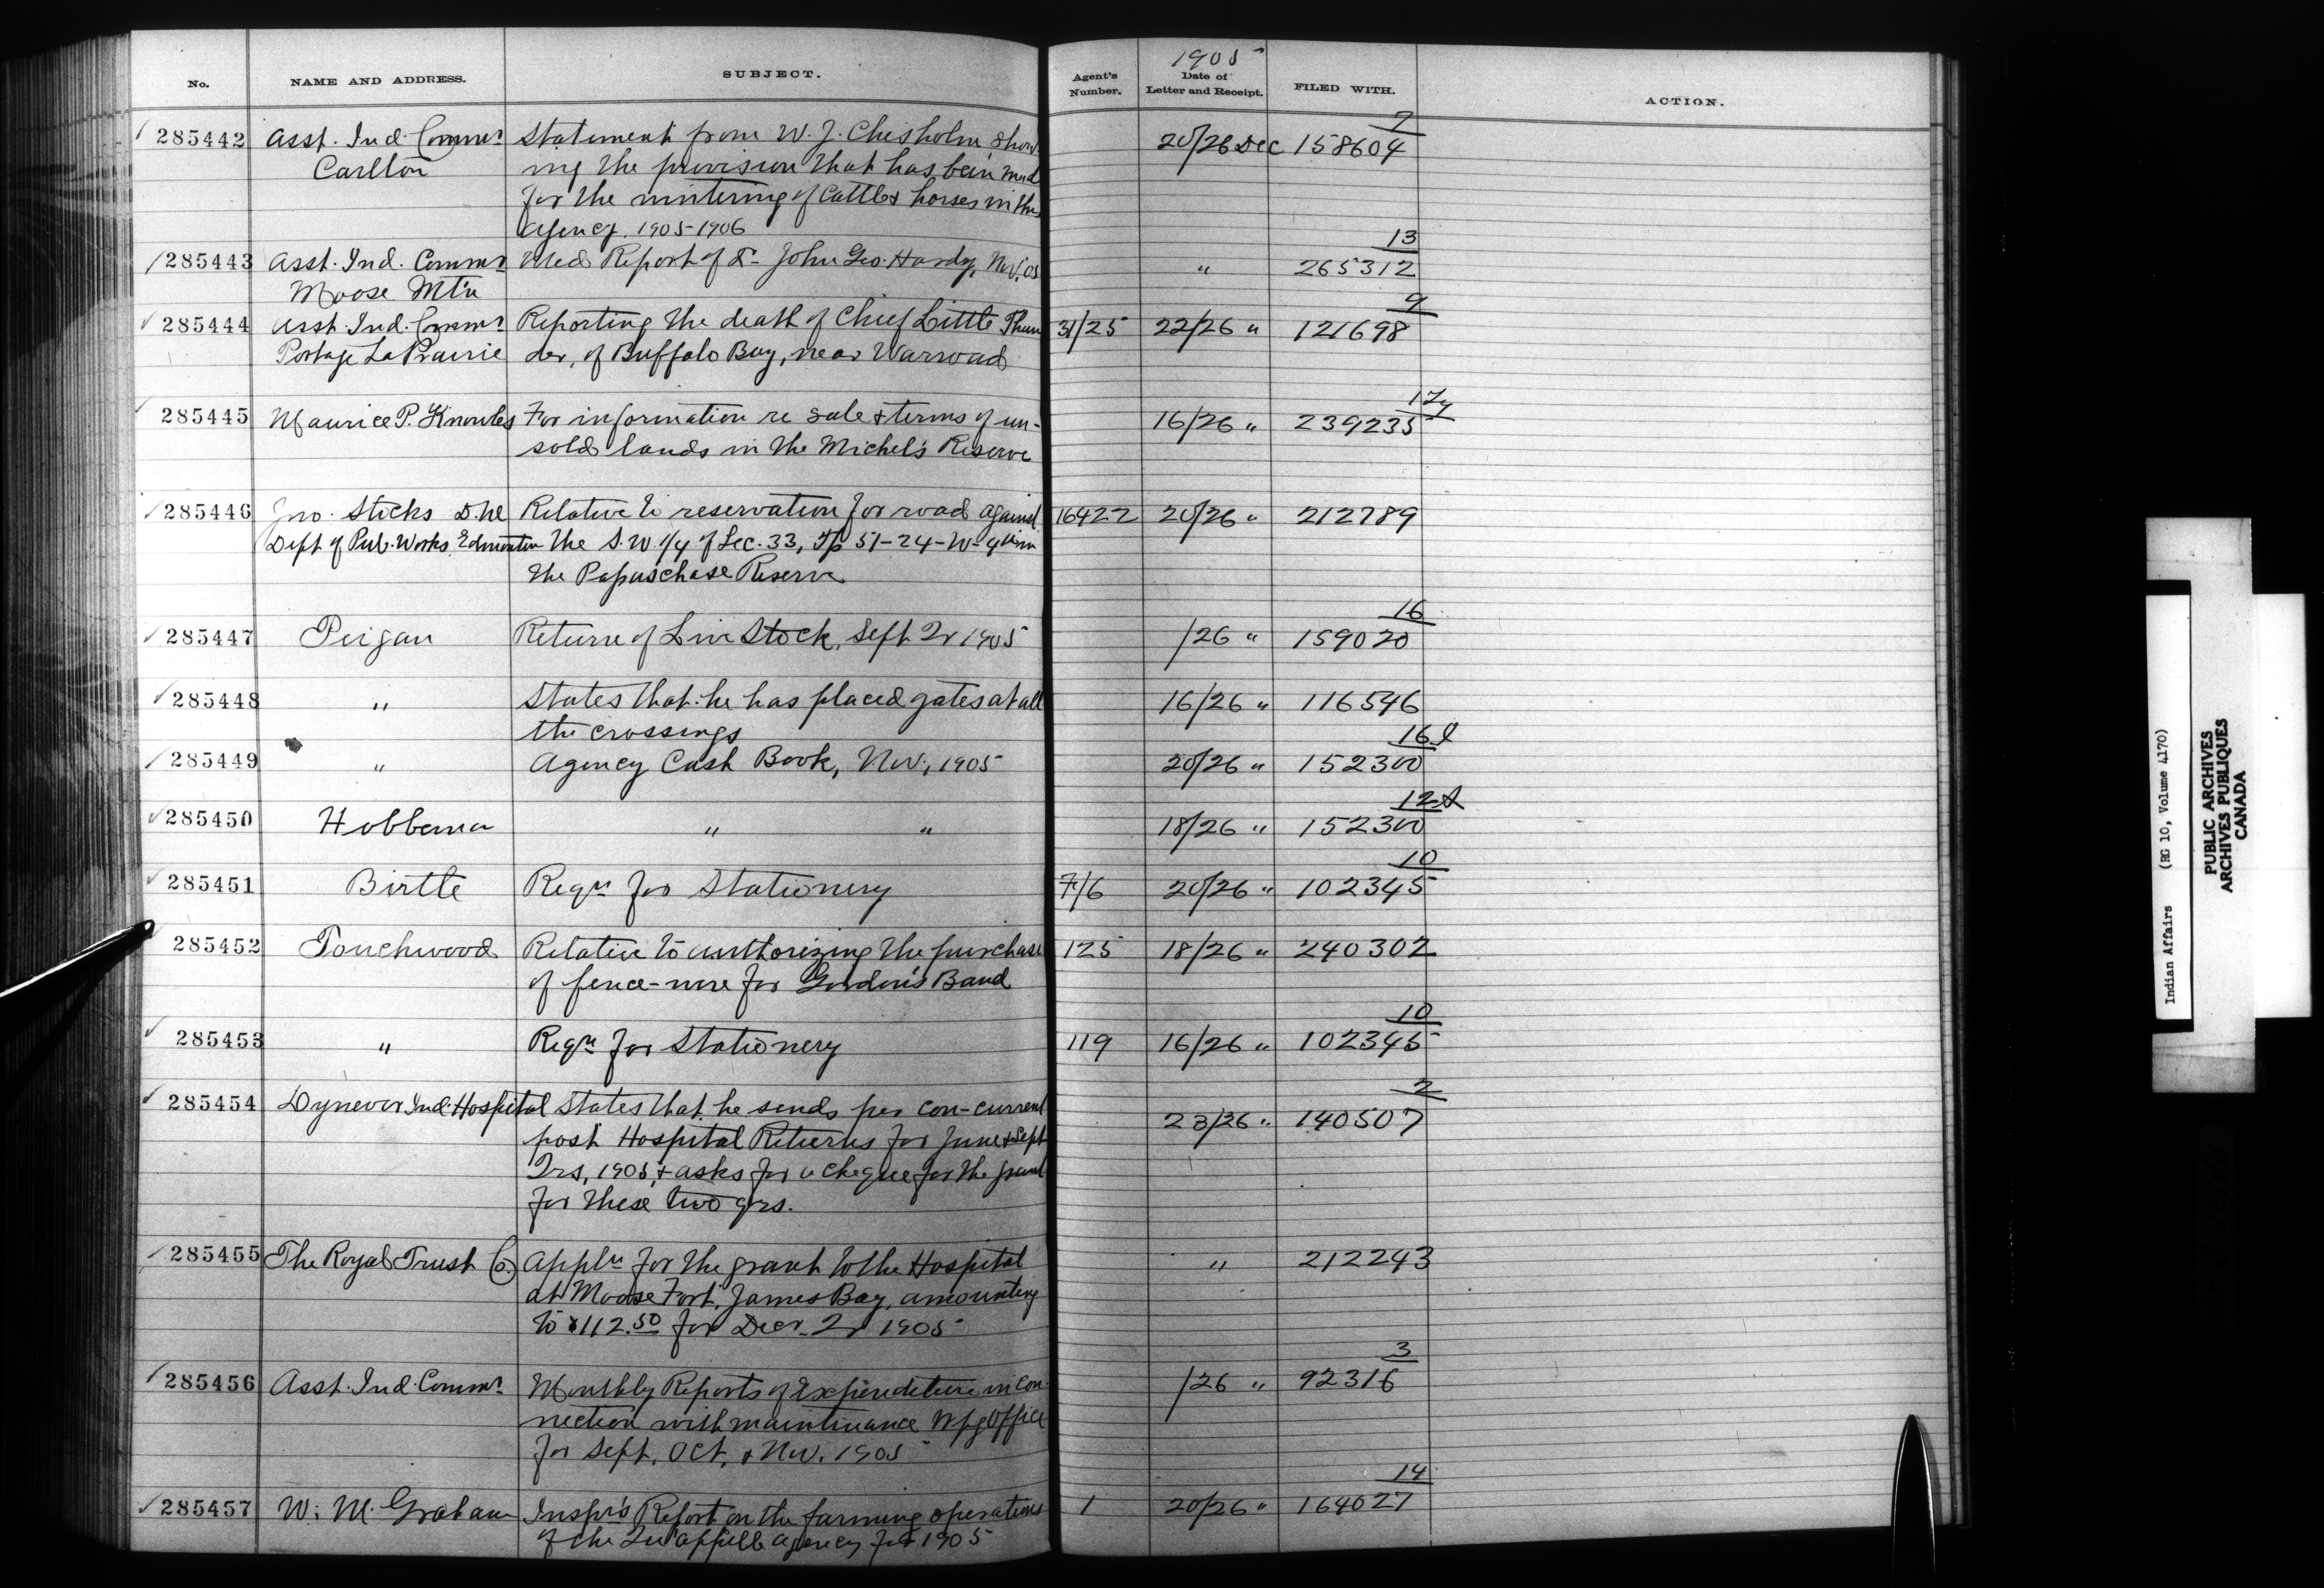 1905
No. NAME AND ADDRESS. SUBJECT. Agent's Number. Date of Letter and Receipt. FILED WITH. ACTION.
7
285442 Asst. Ind. Commr Statement from W. J. Chisholm show- 20/26 Dec 158604
Carlton ing the provision that has been mad
for the wintering of Cattle & horses in this
Agency. 1905-1906
13
285443 Asst. Ind. Commr Med Report of Dr John Geo. Hardy, Nov, 05 " 265312
Moose Mtn
9
285444 Asst. Ind. Commr Reporting the death of Chief Little Thun 31/25 22/26 " 121698
Portage La Prairie der, of Buffalo Bay, near Warroad
285445 Maurice P. Knowles For information re sale & terms of un- 16/26 " 239235
sold lands in the Michel's Reserve
285446 Jno. Stocks D. he Relative to reservation for road against 16422 20/26 " 212789
Dept of Pub. Works Edmonton the S.W. 1/4 of Sec. 33, Tp 51-24-W-4 in
the Papaschase Reserve
16
285447 Peigan Return of Live Stock, Sept Qr 1905 /26 " 159020
285448 " States that he has placed gates at all 16/26 " 116546
the crossings
16
285449 " Agency Cash Book, Nov, 1905 20/26 " 152300
12
285450 Hobbema " " 18/26 " 152300
10
285451 Birtle Reqn for Stationery 7/6 20/26 " 102345
285452 Touchwood Relative to authorizing the purchase 125 18/26 " 240302
of fence-wire for Gordon's Band
10
285453 " Reqn for Stationery 119 16/26 " 102345
2
285454 Dynevor Ind. Hospital States that he sends per con-current 23/26 " 140507
post Hospital Returns for June & Sept
Qrs, 1905, & asks for a cheque for the grant
for these two qrs.
285455 The Royal Trust Co. Appln for the grant to the Hospital " 212243
at Moose Fort, James Bay, amounting
to $112.50 for Decr. Qr 1905
3
285456 Asst. Ind. Commr Monthly Reports of Expenditure in con- /26 " 92316
nection with maintenance Wpg Office
for Sept, Oct, & Nov. 1905
14
285457 W. M. Graham Inspr's Report on the farming operations 1 20/26 " 164027
of the Qu'appelle agency for 1905
Indian Affairs (RG 10, Volume 4170)
PUBLIC ARCHIVES
ARCHIVES PUBLIQUES
CANADA